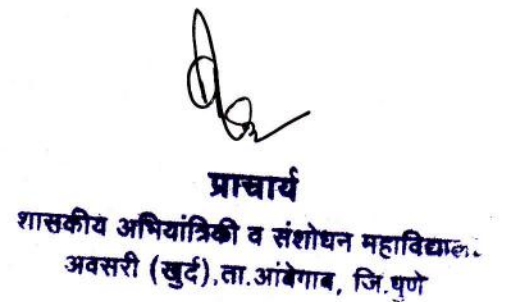 प्राचार्य
शासकीय अभियांत्रिकी व संशोधन महाविद्यालय
अवसरी (खुर्द),ता.आंबेगाव, जि.पुणे